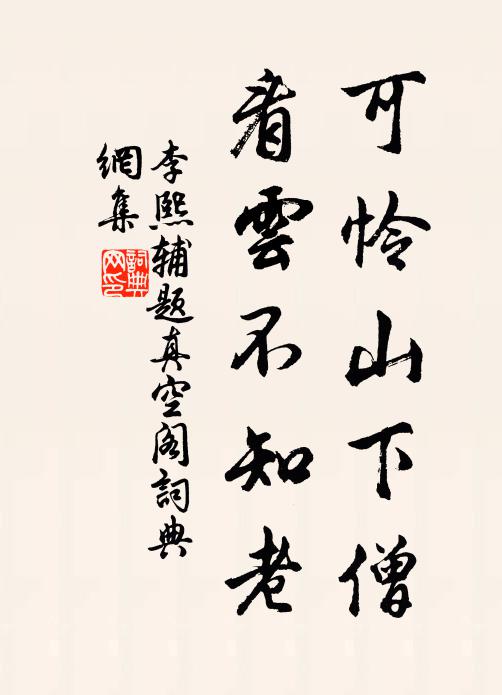 可怜山下僧
看雲不知老
李熙辅题真空阁詞典
網集
詞典
网印